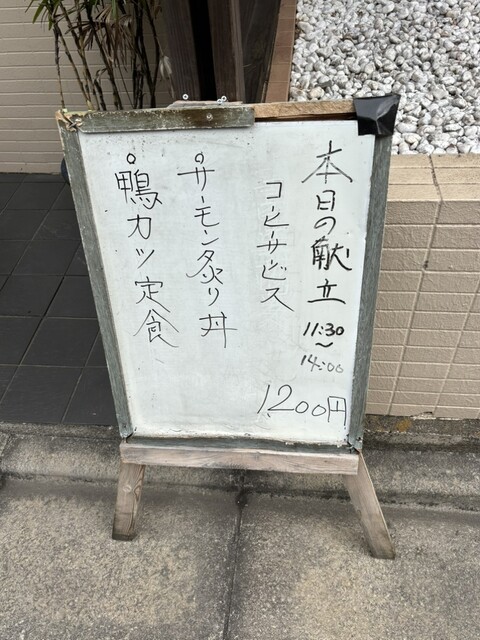 本日の献立
11:30
～
14:00
1200円
コーヒーサービス
。サーモン炙り丼
。鴨カツ定食